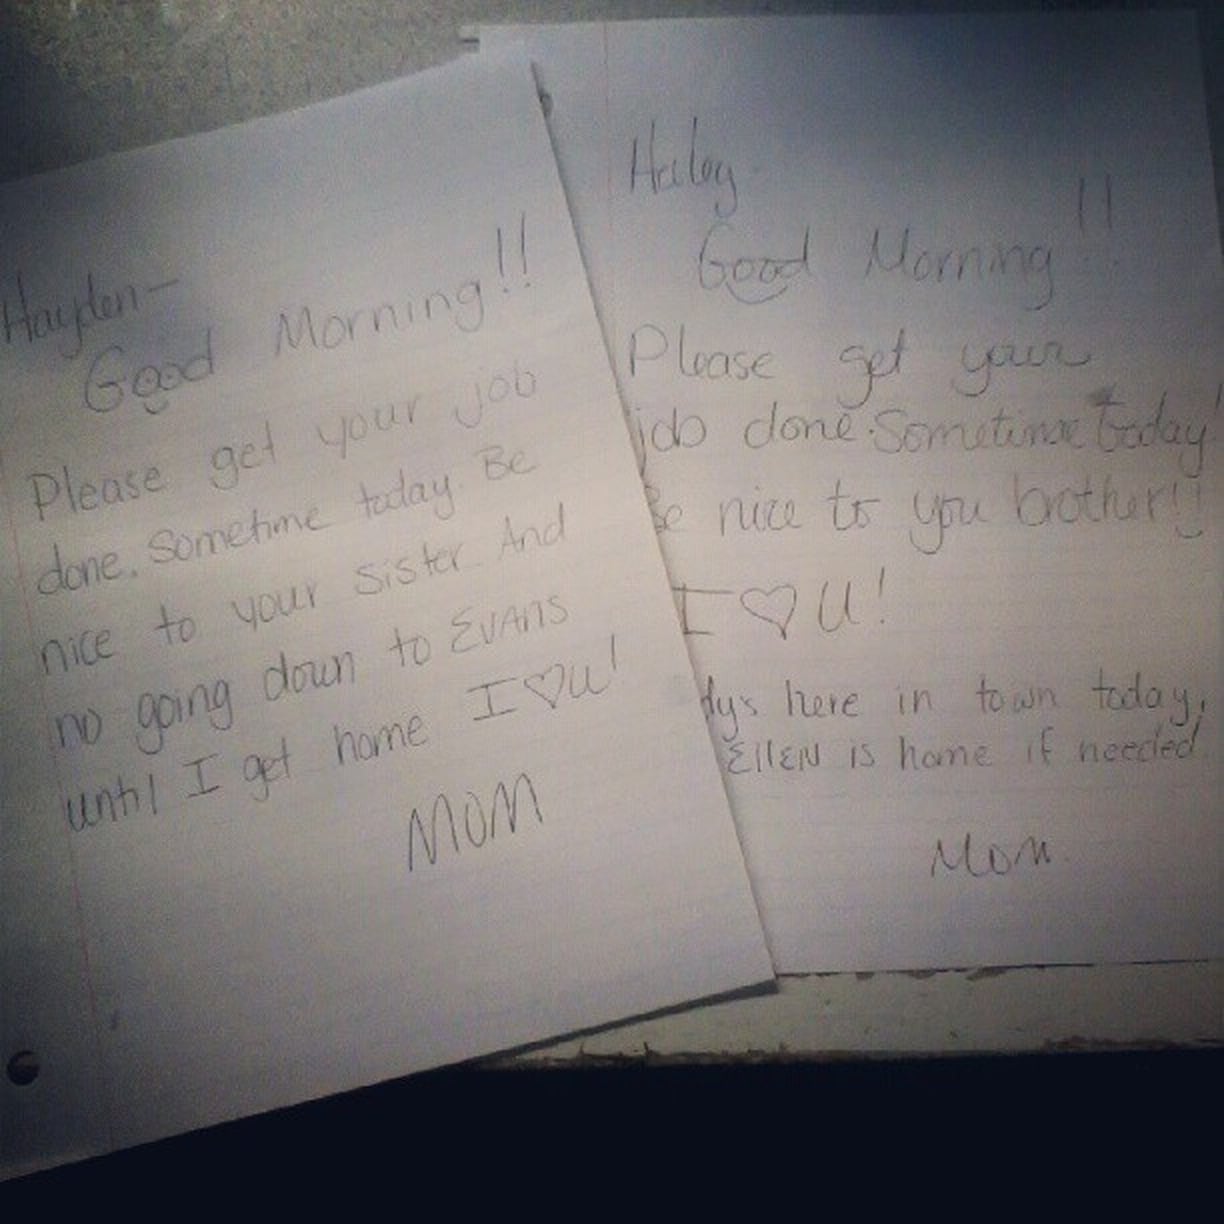 Hayden-
Good Morning!!
Please get your job
done. Sometime today. Be
nice to your sister. And
no going down to EVANS
until I get home I ♡ U!
MOM
Haley
Good Morning!!
Please get your
job done. Sometime today!
Be nice to you brother!!
I ♡ U!
here in town today,
EllEN is home if needed
Mom